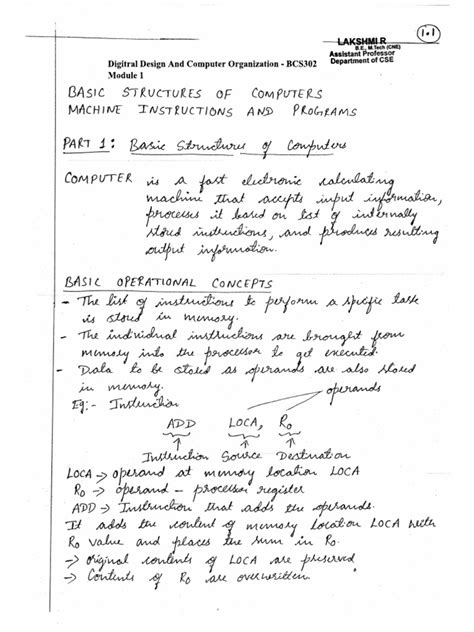 1.1
LAKSHMI R
B.E., M.Tech (CNE)
Assistant Professor
Department of CSE
Digitral Design And Computer Organization - BCS302
Module 1
BASIC STRUCTURES OF COMPUTERS
MACHINE INSTRUCTIONS AND PROGRAMS
PART 1: Basic Structures of Computers
COMPUTER is a fast electronic calculating
machine that accepts input information,
processes it based on list of internally
stored instructions, and produces resulting
output information.
BASIC OPERATIONAL CONCEPTS
- The list of instructions to perform a specific task
is stored in memory.
- The individual instructions are brought from
memory into the processor to get executed.
- Data to be stored as operands are also stored
in memory.
Eg:- Instruction
operands
ADD LOCA, R0
Instruction Source Destination
LOCA → operand at memory location LOCA
R0 → operand - processor register
ADD → Instruction that adds the operands.
It adds the content of memory location LOCA with
R0 value and places the sum in R0.
→ original contents of LOCA are preserved
→ Contents of R0 are overwritten.